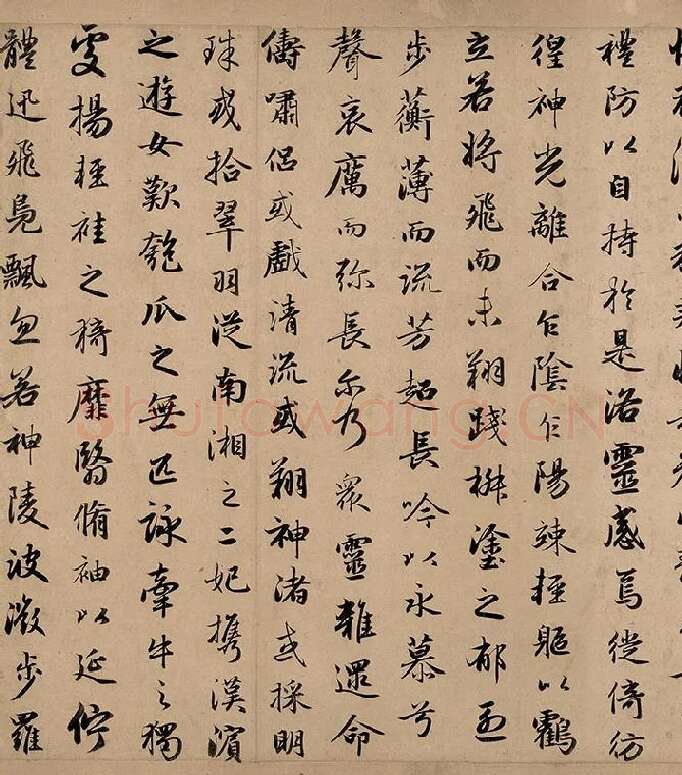 禮防以自持於是洛靈感焉徙倚彷
徨神光離合乍陰乍陽竦輕軀以鶴
立若將飛而未翔踐椒塗之郁烈
步蘅薄而流芳超長吟以永慕兮
聲哀厲而弥長尔乃眾靈雜遝命
儔嘯侶或戲清流或翔神渚或採明
珠或拾翠羽從南湘之二妃攜漢濱
之遊女歎匏瓜之無匹詠牽牛之獨
處揚輕袿之猗靡翳脩袖以延佇
體迅飛鳧飄忽若神陵波微步羅
shufawang.CN